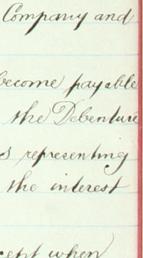 Company and
become payable
the Debenture
s representing
the interest
cept when